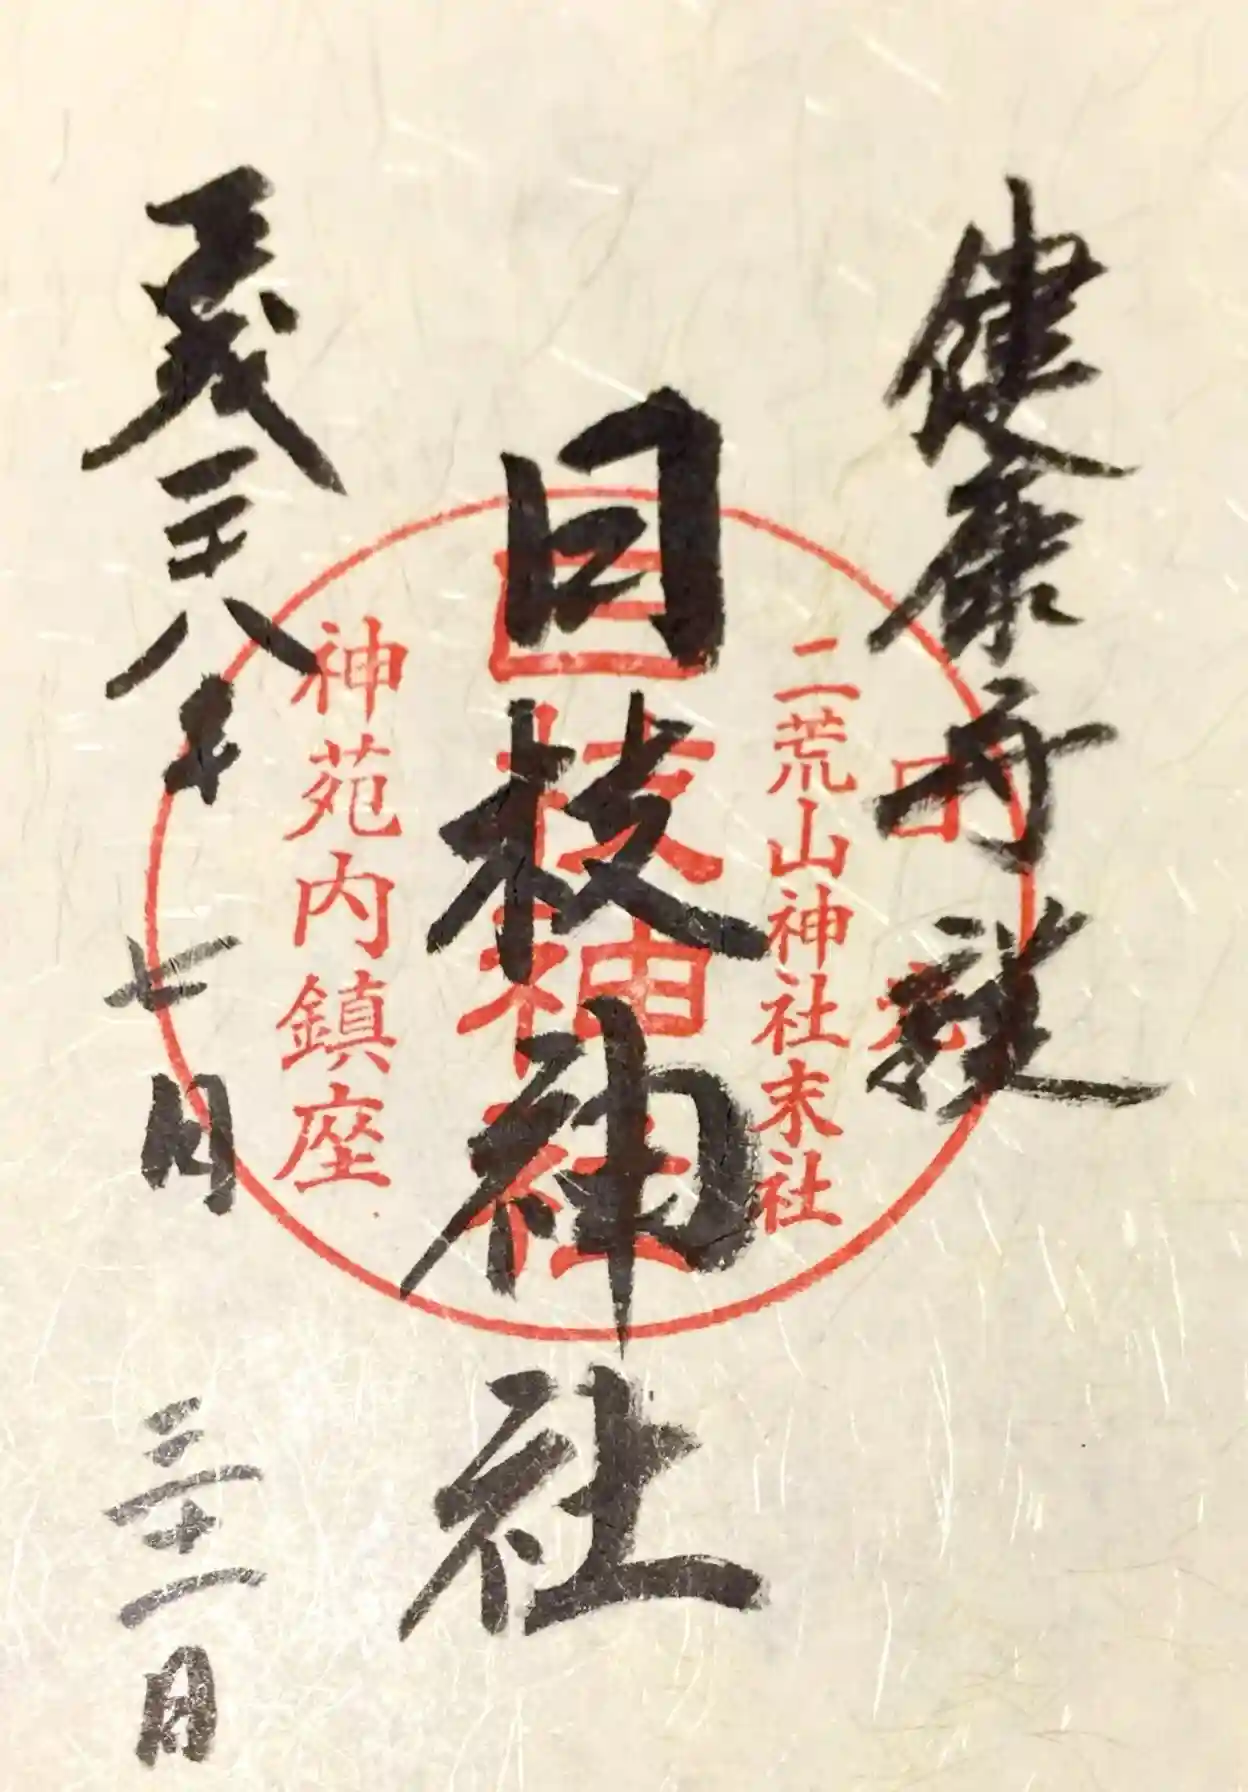 健康守護
日光
二荒山神社末社
日枝神社
日枝神社
神苑内鎮座
平成二十八年七月三十一日